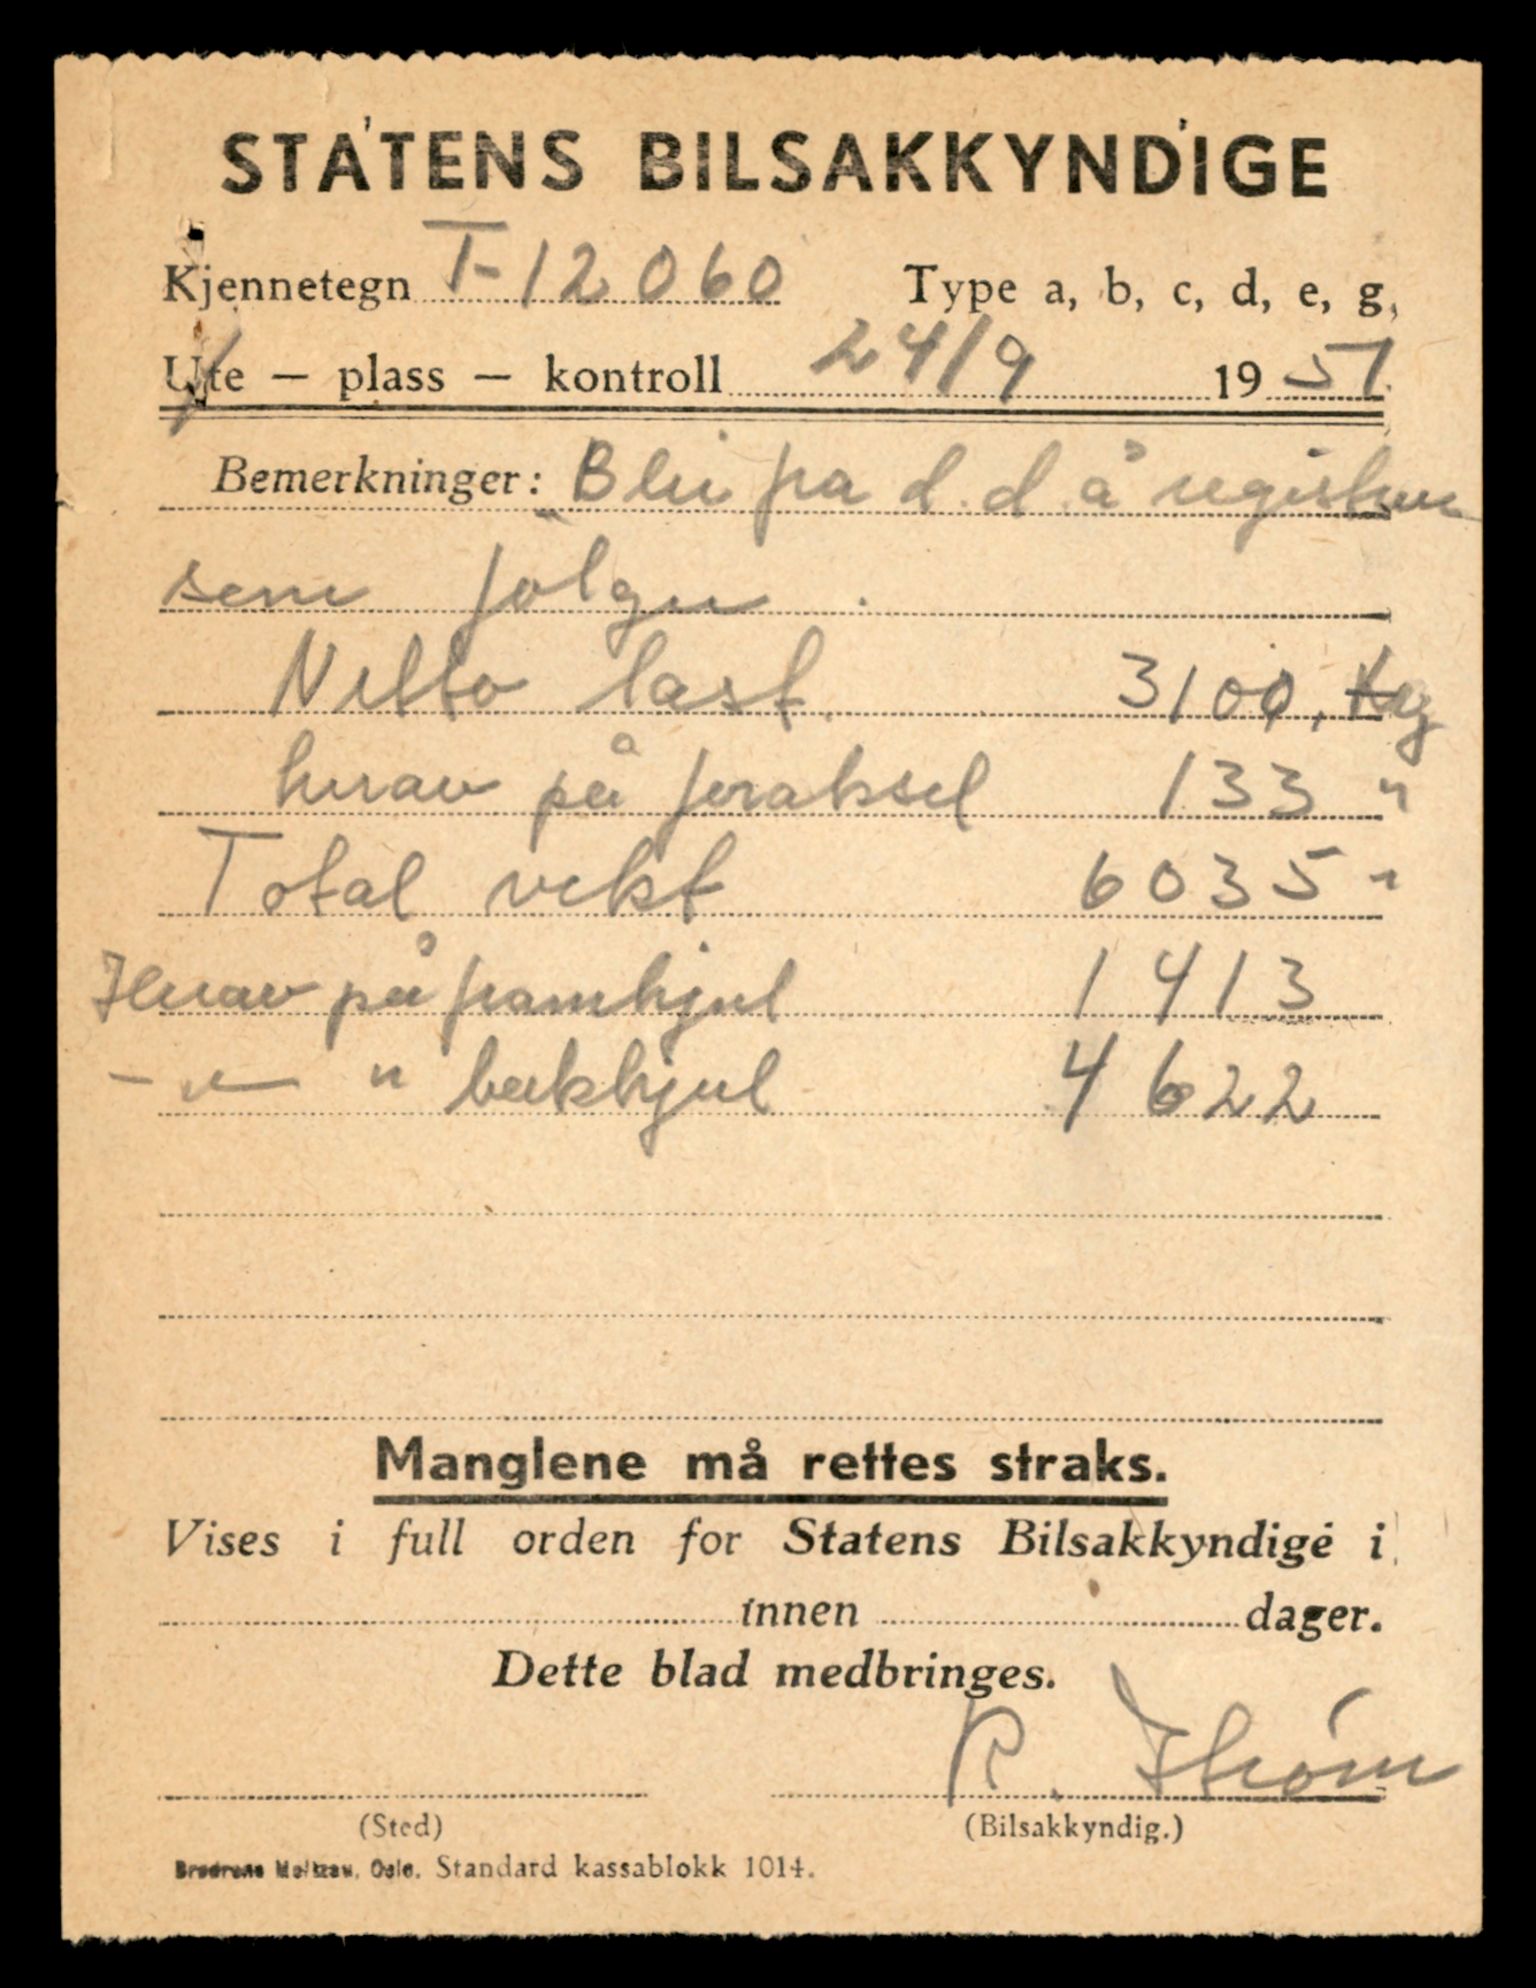 STATENS BILSAKKYNDIGE
Kjennetegn T-12060 Type a, b, c, d, e, g,
Ute — plass — kontroll 24/9 1951
Bemerkninger: Blir på d.d. å registrere
som følger.
Netto last. 3100, kg
herav på foraksel 133 "
Total vekt 6035 "
Herav på framhjul 1413
— " — " bakhjul 4622
Manglene må rettes straks.
Vises i full orden for Statens Bilsakkyndige i
innen dager.
Dette blad medbringes.
R.
(Sted) (Bilsakkyndig.)
Brødrene Oslo. Standard kassablokk 1014.